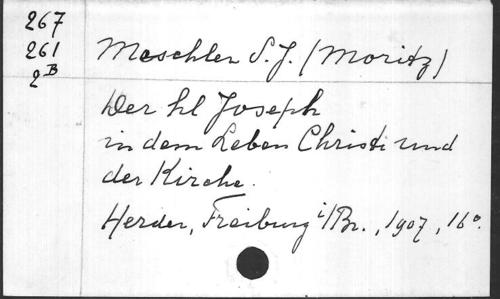 267
261
2B
Meschler S.J. (Moritz)
Der hl Joseph
in dem Leben Christi und
der Kirche.
Herder, Freiburg i/Br., 1907, 16°.